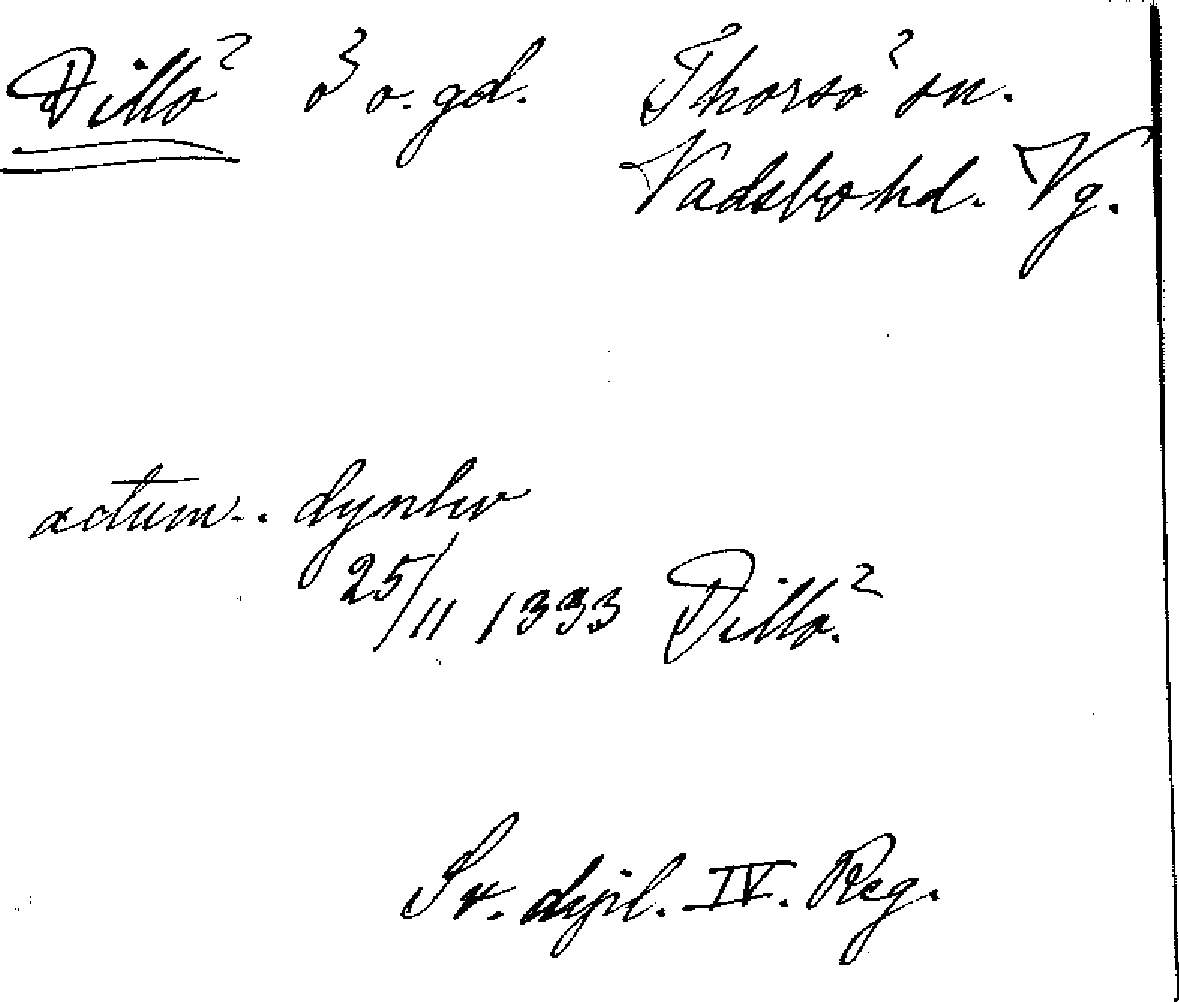 Dillö ö o. gd. Thorsö sn.
Vadsbo hd. Vg.
actum..
25/11 1333 Dillö.
Sv. dipl. IV. Reg.